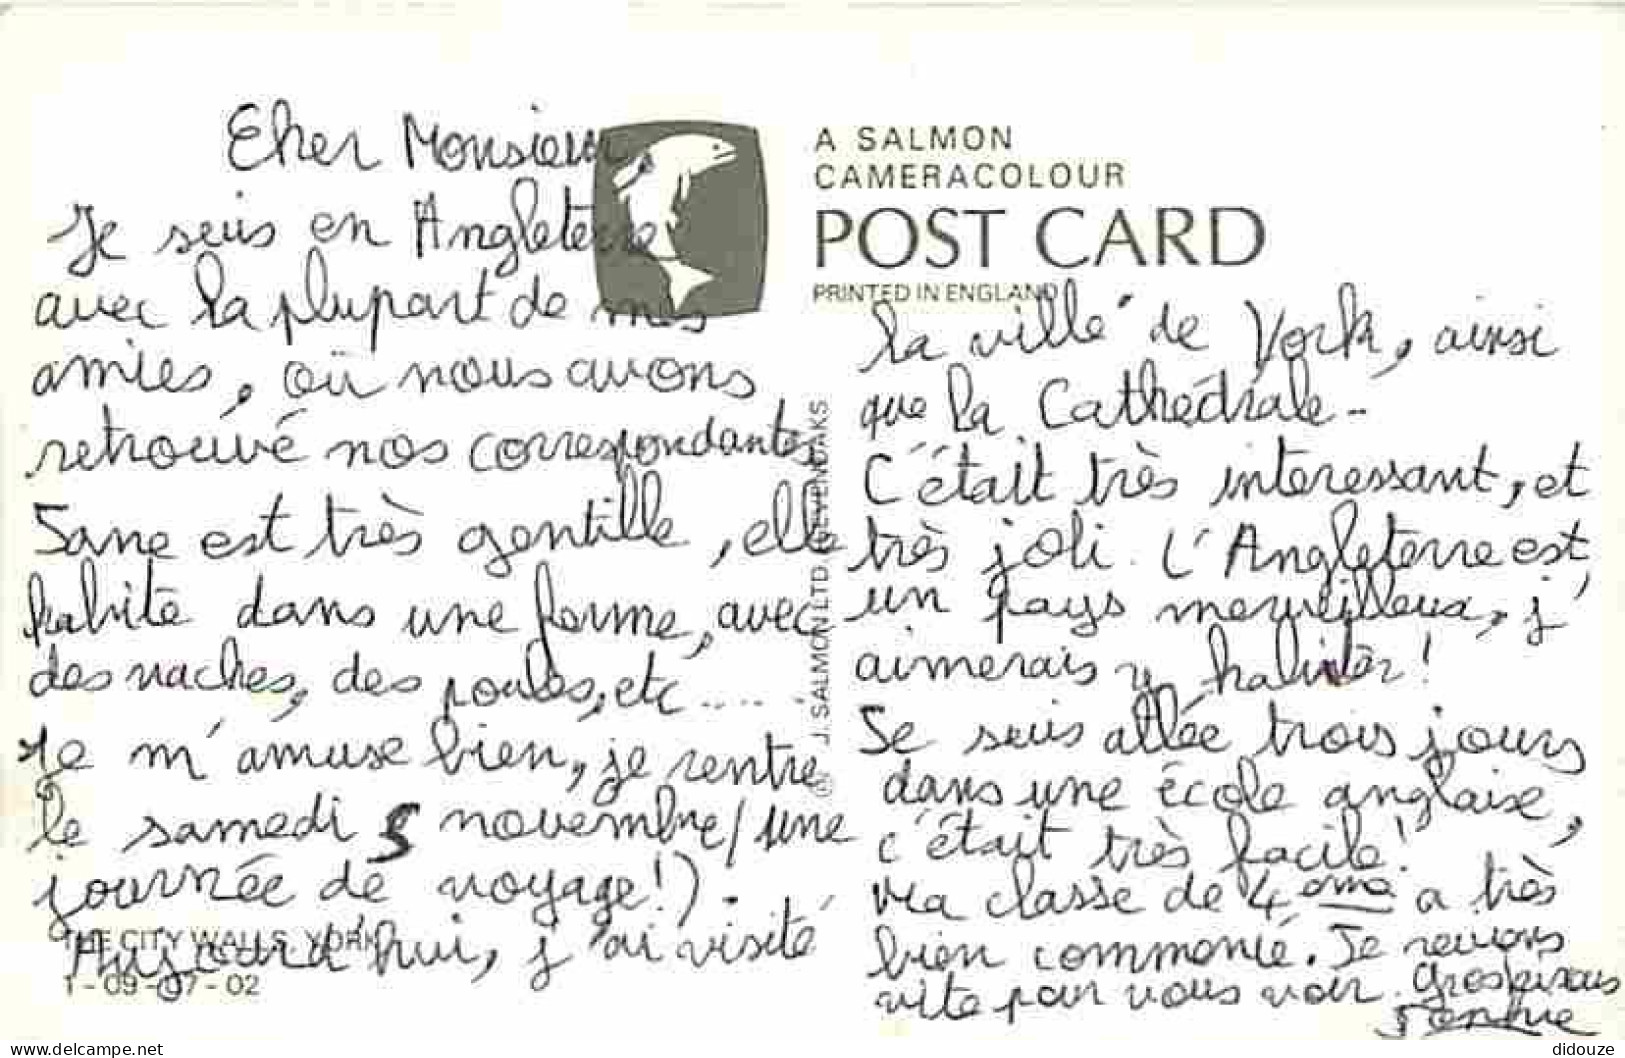 Cher Monsieur,
Je suis en Angleterre
avec la plupart de mes
amies, où nous avons
retrouvé nos correspondantes
Jane est très gentille, elle
habite dans une ferme, avec
des vaches, des poules, etc.....
Je m'amuse bien, je rentre
le samedi 5 novembre (une
journée de voyage!).
Aujourd'hui, j'ai visité
THE CITY WALLS, YORK
1-09-07-02
J. SALMON LTD. SEVENOAKS ©
A SALMON
CAMERACOLOUR
POST CARD
PRINTED IN ENGLAND
la ville de York, ainsi
que la Cathédrale-
C'était très interessant, et
très joli. L'Angleterre est
un pays merveilleux, j'
aimerais y habiter!
Je suis allée trois jours
dans une école anglaise,
c'était très facile!
Ma classe de 4ème a très
bien commencé. Je reviens
vite pour vous voir. Gros bisous
didouze